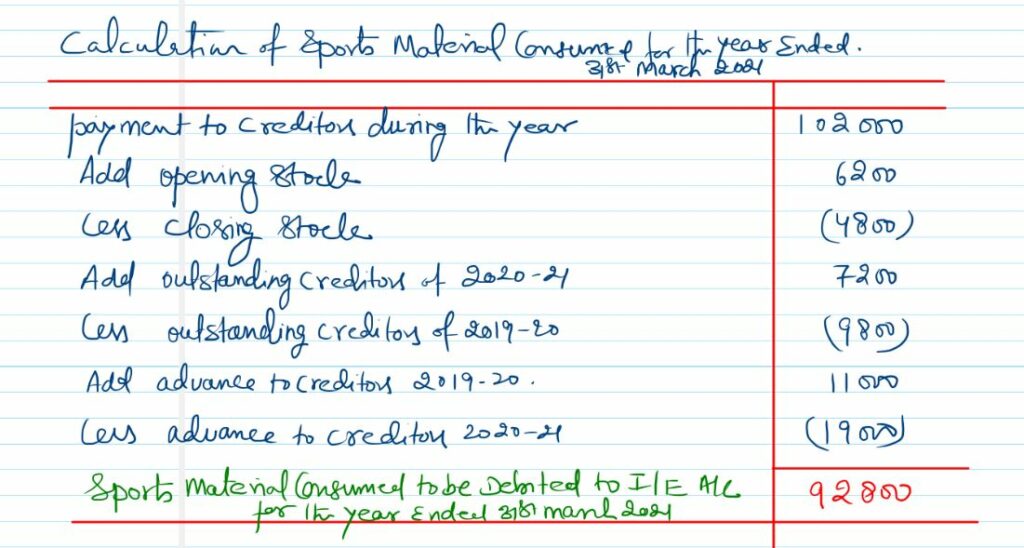 Calculation of Sports Material Consumed for the year Ended.
31st March 2021
payment to Creditors during the year 102000
Add opening Stock 6200
Less closing Stock (4800)
Add outstanding Creditors of 2020-21 7200
Less outstanding Creditors of 2019-20 (9800)
Add advance to Creditors 2019-20. 11000
Less advance to Creditors 2020-21 (19000)
Sports Material Consumed to be Debited to I/E A/C 92800
for the year Ended 31st march 2021